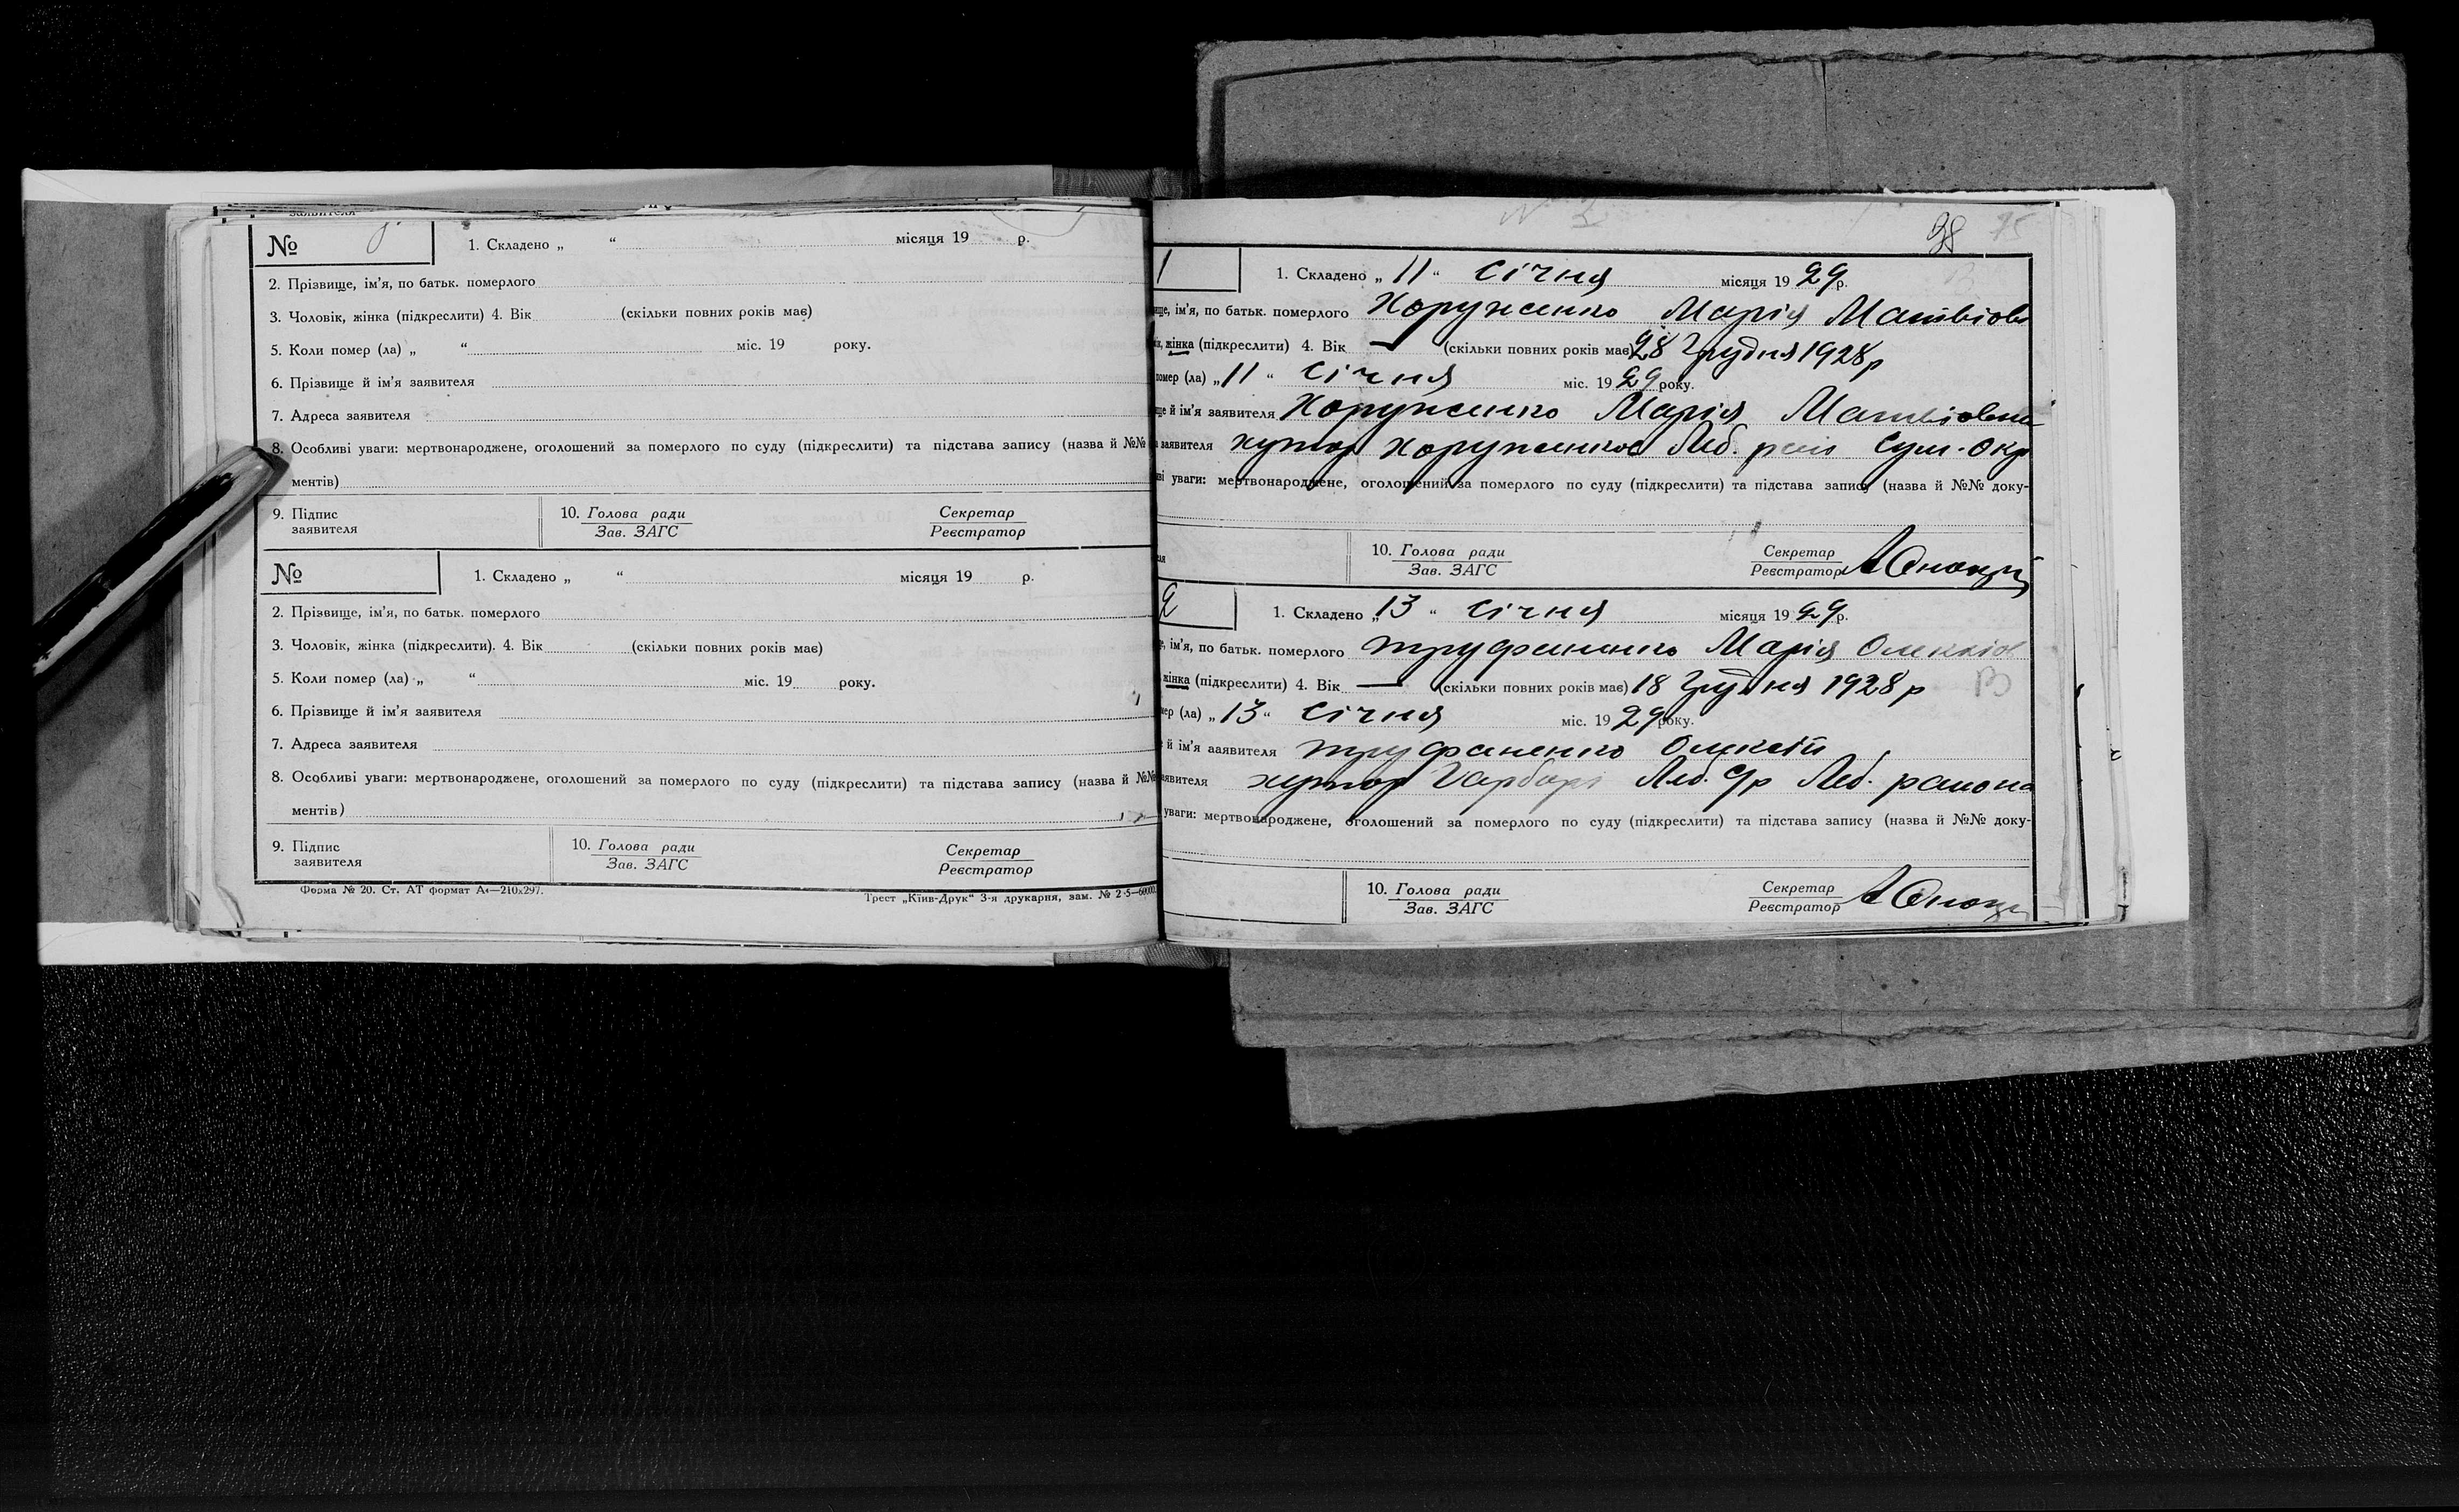 заявителя
№ 1. Складено „ “ місяця 19 р.
2. Прізвище, ім'я, по батьк. померлого
3. Чоловік, жінка (підкреслити) 4. Вік (скільки повних років має)
5. Коли помер (ла) „ “ міс. 19 року.
6. Прізвище й ім'я заявителя
7. Адреса заявителя
8. Особливі уваги: мертвонароджене, оголошений за померлого по суду (підкреслити) та підстава запису (назва й №№
ментів)
9. Підпис заявителя 10. Голова ради Зав. ЗАГС Секретар Реєстратор
№ 1. Складено „ “ місяця 19 р.
2. Прізвище, ім'я, по батьк. померлого
3. Чоловік, жінка (підкреслити). 4. Вік (скільки повних років має)
5. Коли помер (ла) „ “ міс. 19 року.
6. Прізвище й ім'я заявителя
7. Адреса заявителя
8. Особливі уваги: мертвонароджене, оголошений за померлого по суду (підкреслити) та підстава запису (назва й №№
ментів)
9. Підпис заявителя 10. Голова ради Зав. ЗАГС Секретар Реєстратор
Форма № 20. Ст. АТ формат А4—210х297. Трест „Київ-Друк“ 3-я друкарня, зам. № 2·5—60000.
1 1. Складено „ 11 “ Січня місяця 19 29 р.
ще, ім'я, по батьк. померлого Хоруженко Марія Матвіовн
жінка (підкреслити) 4. Вік — (скільки повних років має) 28 Грудня 1928 р
помер (ла) „ 11 “ Січня міс. 19 29 року.
ще й ім'я заявителя Хоруженко Марія Матвіовна
заявителя хутор Хоруженков Леб. рай Сум. Окр
ві уваги: мертвонароджене, оголошений за померлого по суду (підкреслити) та підстава запису (назва й №№ доку-
10. Голова ради Зав. ЗАГС Секретар Реєстратор
2 1. Складено „ 13 “ Січня місяця 19 29 р.
е, ім'я, по батьк. померлого Труфаненко Марія Олексіов
жінка (підкреслити) 4. Вік — (скільки повних років має) 18 Грудня 1928 р
мер (ла) „ 13 “ Січня міс. 19 29 року.
й ім'я ааявителя Труфаненко Олексій
заявителя хутор Гарбарі Леб. С/р Леб. района
уваги: мертвонароджене, оголошений за померлого по суду (підкреслити) та підстава запису (назва й №№ доку-
10. Голова ради Зав. ЗАГС Секретар Реєстратор